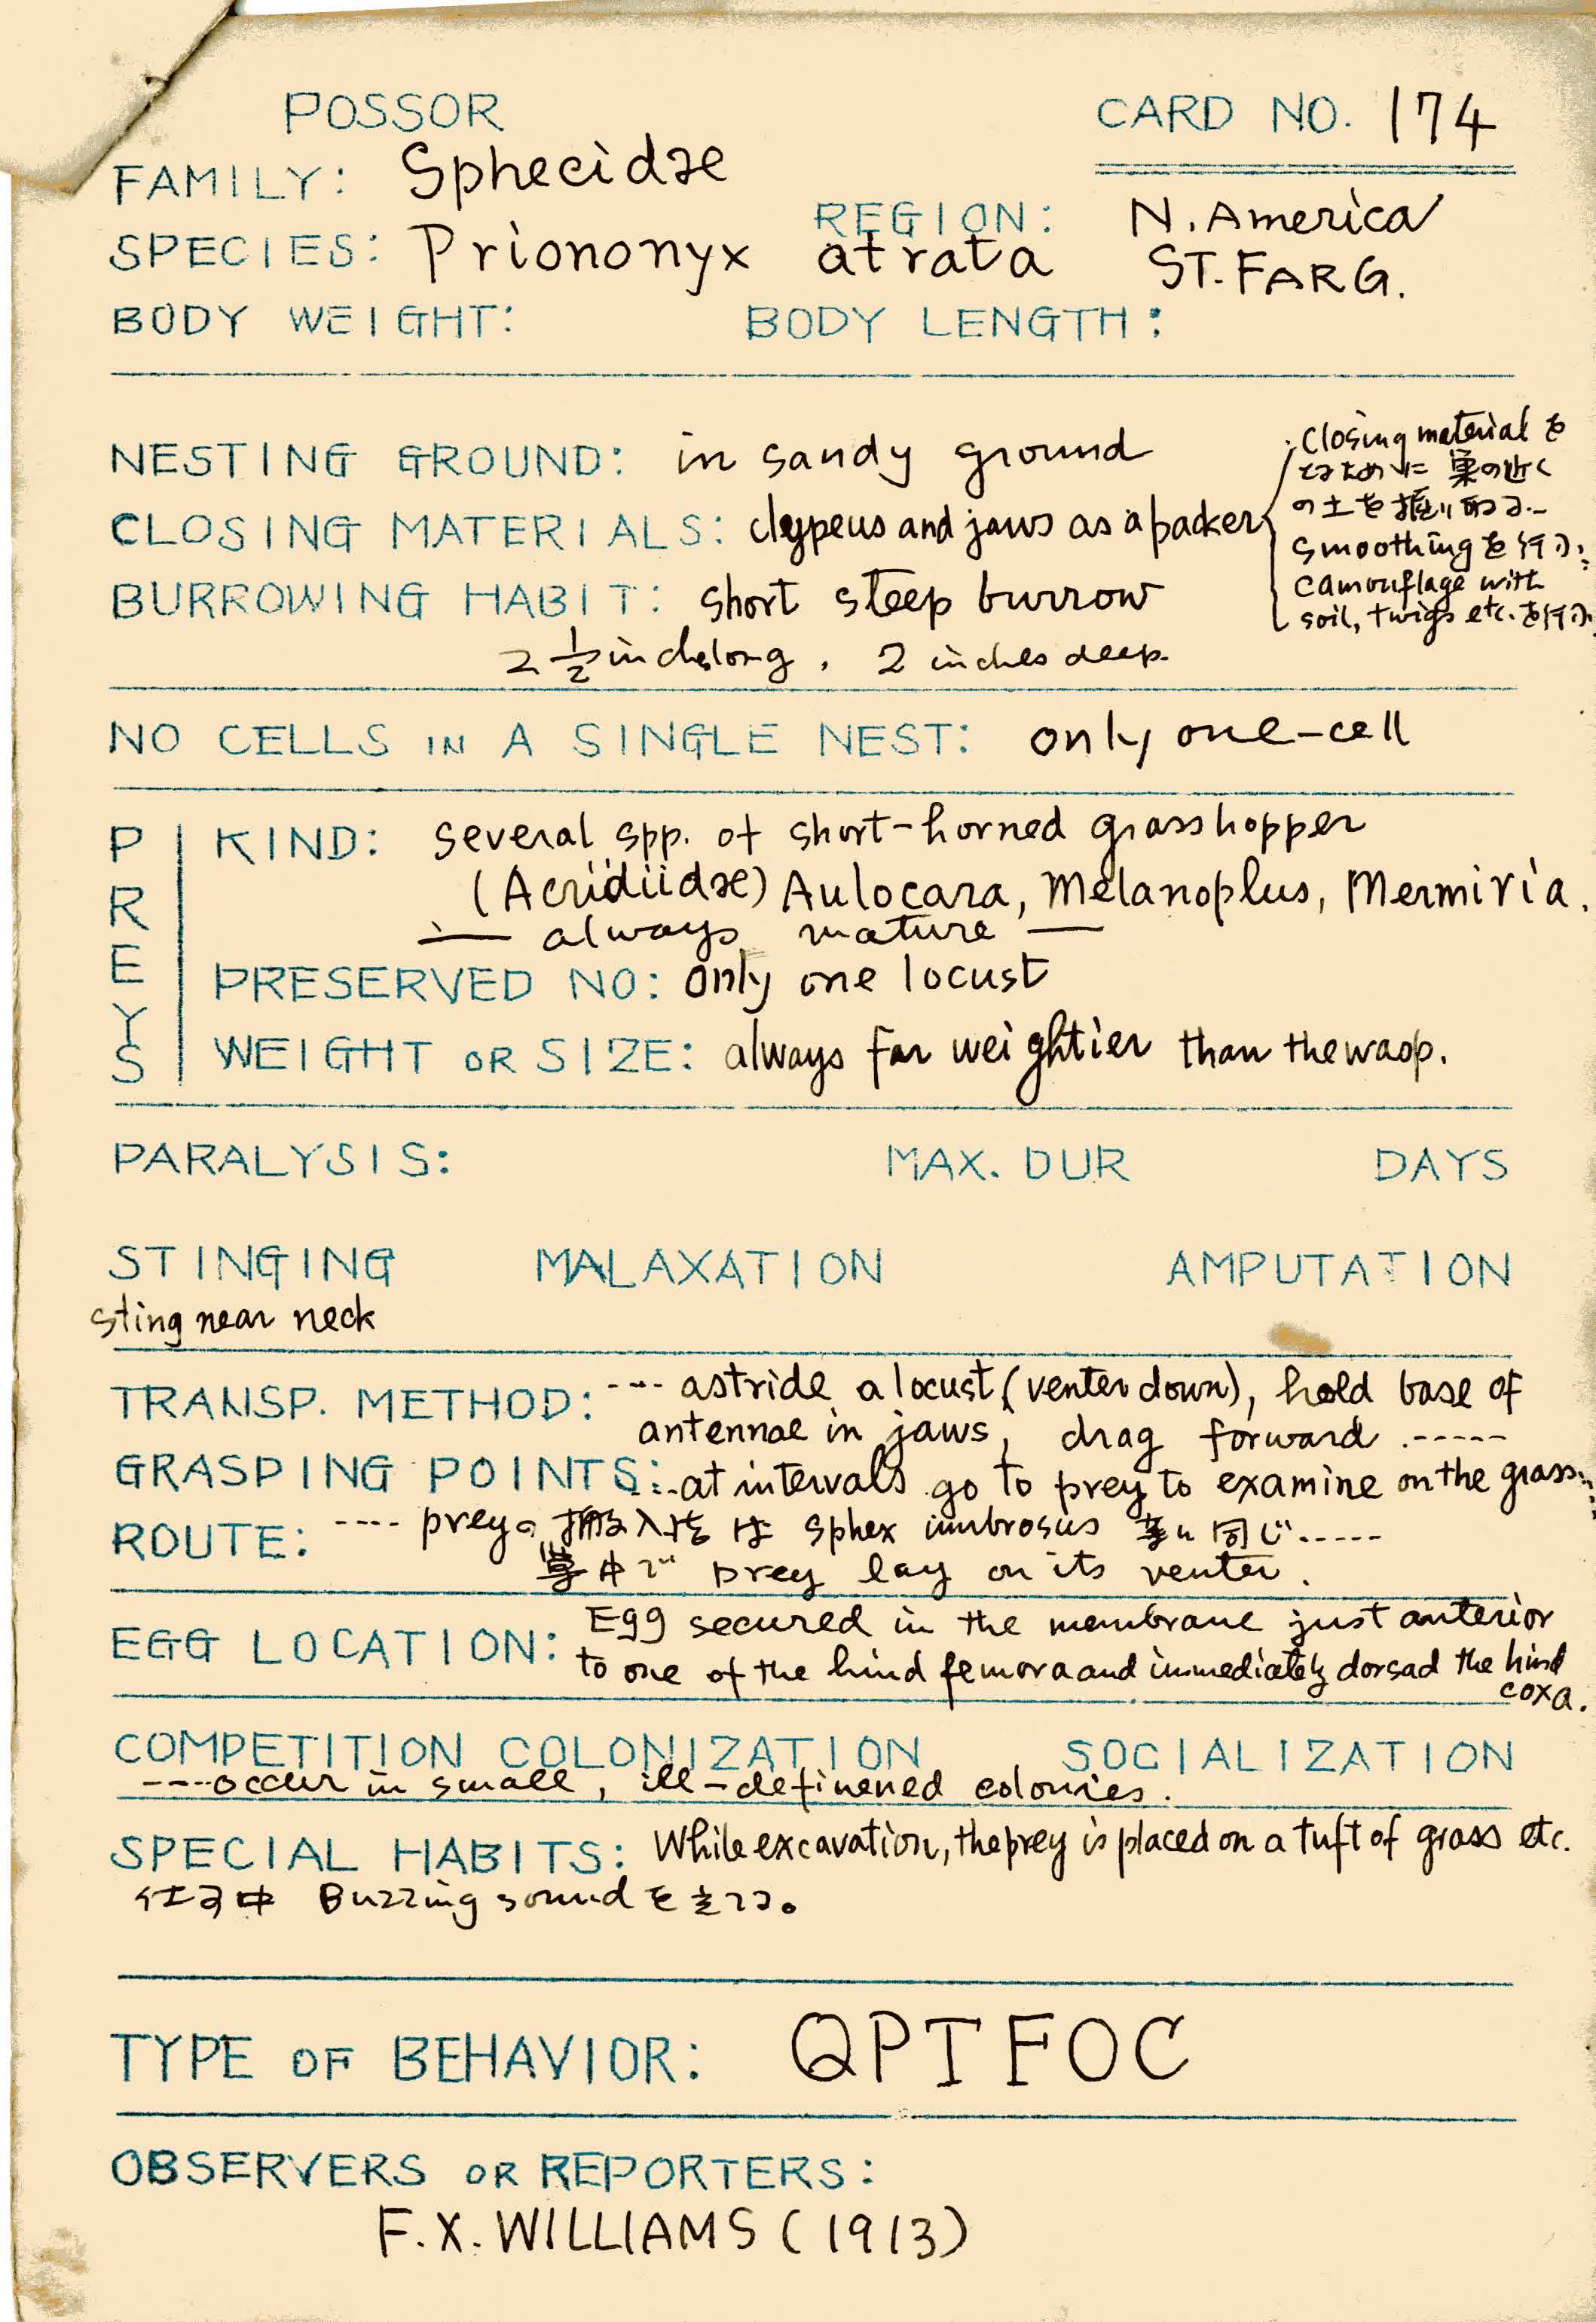 POSSOR
CARD NO. 174
FAMILY: Sphecidae
REGION: N. America
SPECIES: Priononyx atrata ST. FARG.
BODY WEIGHT: BODY LENGTH:
NESTING GROUND: in sandy ground
CLOSING MATERIALS: clypeus and jaws as a packer
Closing material を
とるために 巣の近く
の土を掘り取る.
smoothingを行う;
camouflage with
soil, twigs etc.を行う.
BURROWING HABIT: short steep burrow
2 1/2 inches long, 2 inches deep.
NO CELLS IN A SINGLE NEST: only one-cell
PREYS
KIND: several spp. of short-horned grasshopper
(Acridiidae) Aulocara, Melanoplus, Mermiria.
— always mature —
PRESERVED NO: only one locust
WEIGHT OR SIZE: always far weightier than the wasp.
PARALYSIS: MAX. DUR DAYS
STINGING MALAXATION AMPUTATION
sting near neck
TRANSP. METHOD: --- astride a locust (venter down), hold base of
antennae in jaws, drag forward .-----
GRASPING POINTS: --at intervals go to prey to examine on the grass.
ROUTE: ---- preyの搬入法は Sphex umbrosus 等に同じ.----
巣中で prey lay on its venter.
EGG LOCATION: Egg secured in the membrane just anterior
to one of the hind femora and immediately dorsad the hind
coxa.
COMPETITION COLONIZATION SOCIALIZATION
----occur in small, ill-definened colonies.
SPECIAL HABITS: While excavation, the prey is placed on a tuft of grass etc.
仕事中 Buzzing soundを立てる。
TYPE OF BEHAVIOR: QPTFOC
OBSERVERS OR REPORTERS:
F.X. WILLIAMS (1913)